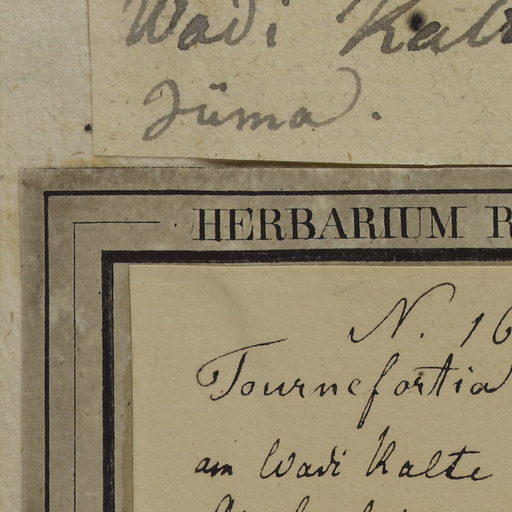 Wadi Kalt
Jüma.
HERBARIUM R
N. 16
Tournefortia
am Wadi Kalte